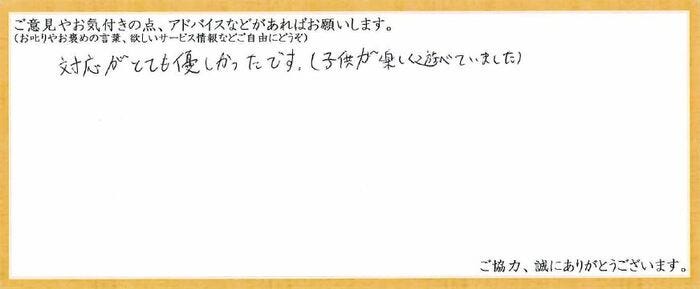 ご意見やお気付きの点、アドバイスなどがあればお願いします。
(お叱りやお褒めの言葉、欲しいサービス情報などご自由にどうぞ)
対応がとても優しかったです。(子供が楽しく遊べていました)
ご協力、誠にありがとうございます。